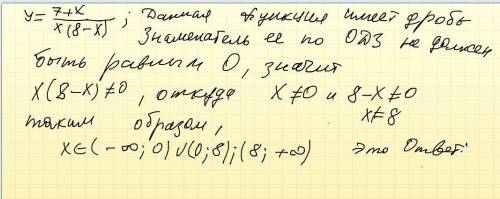 y = 7+x / x(8-x) ; Данная функция имеет дробь
Знаменатель ее по ОДЗ не должен
быть равным 0, значит
x(8-x)≠0, откуда x≠0 и 8-x≠0
x≠8
таким образом,
x∈(-∞; 0)∪(0; 8);(8; +∞) это Ответ.